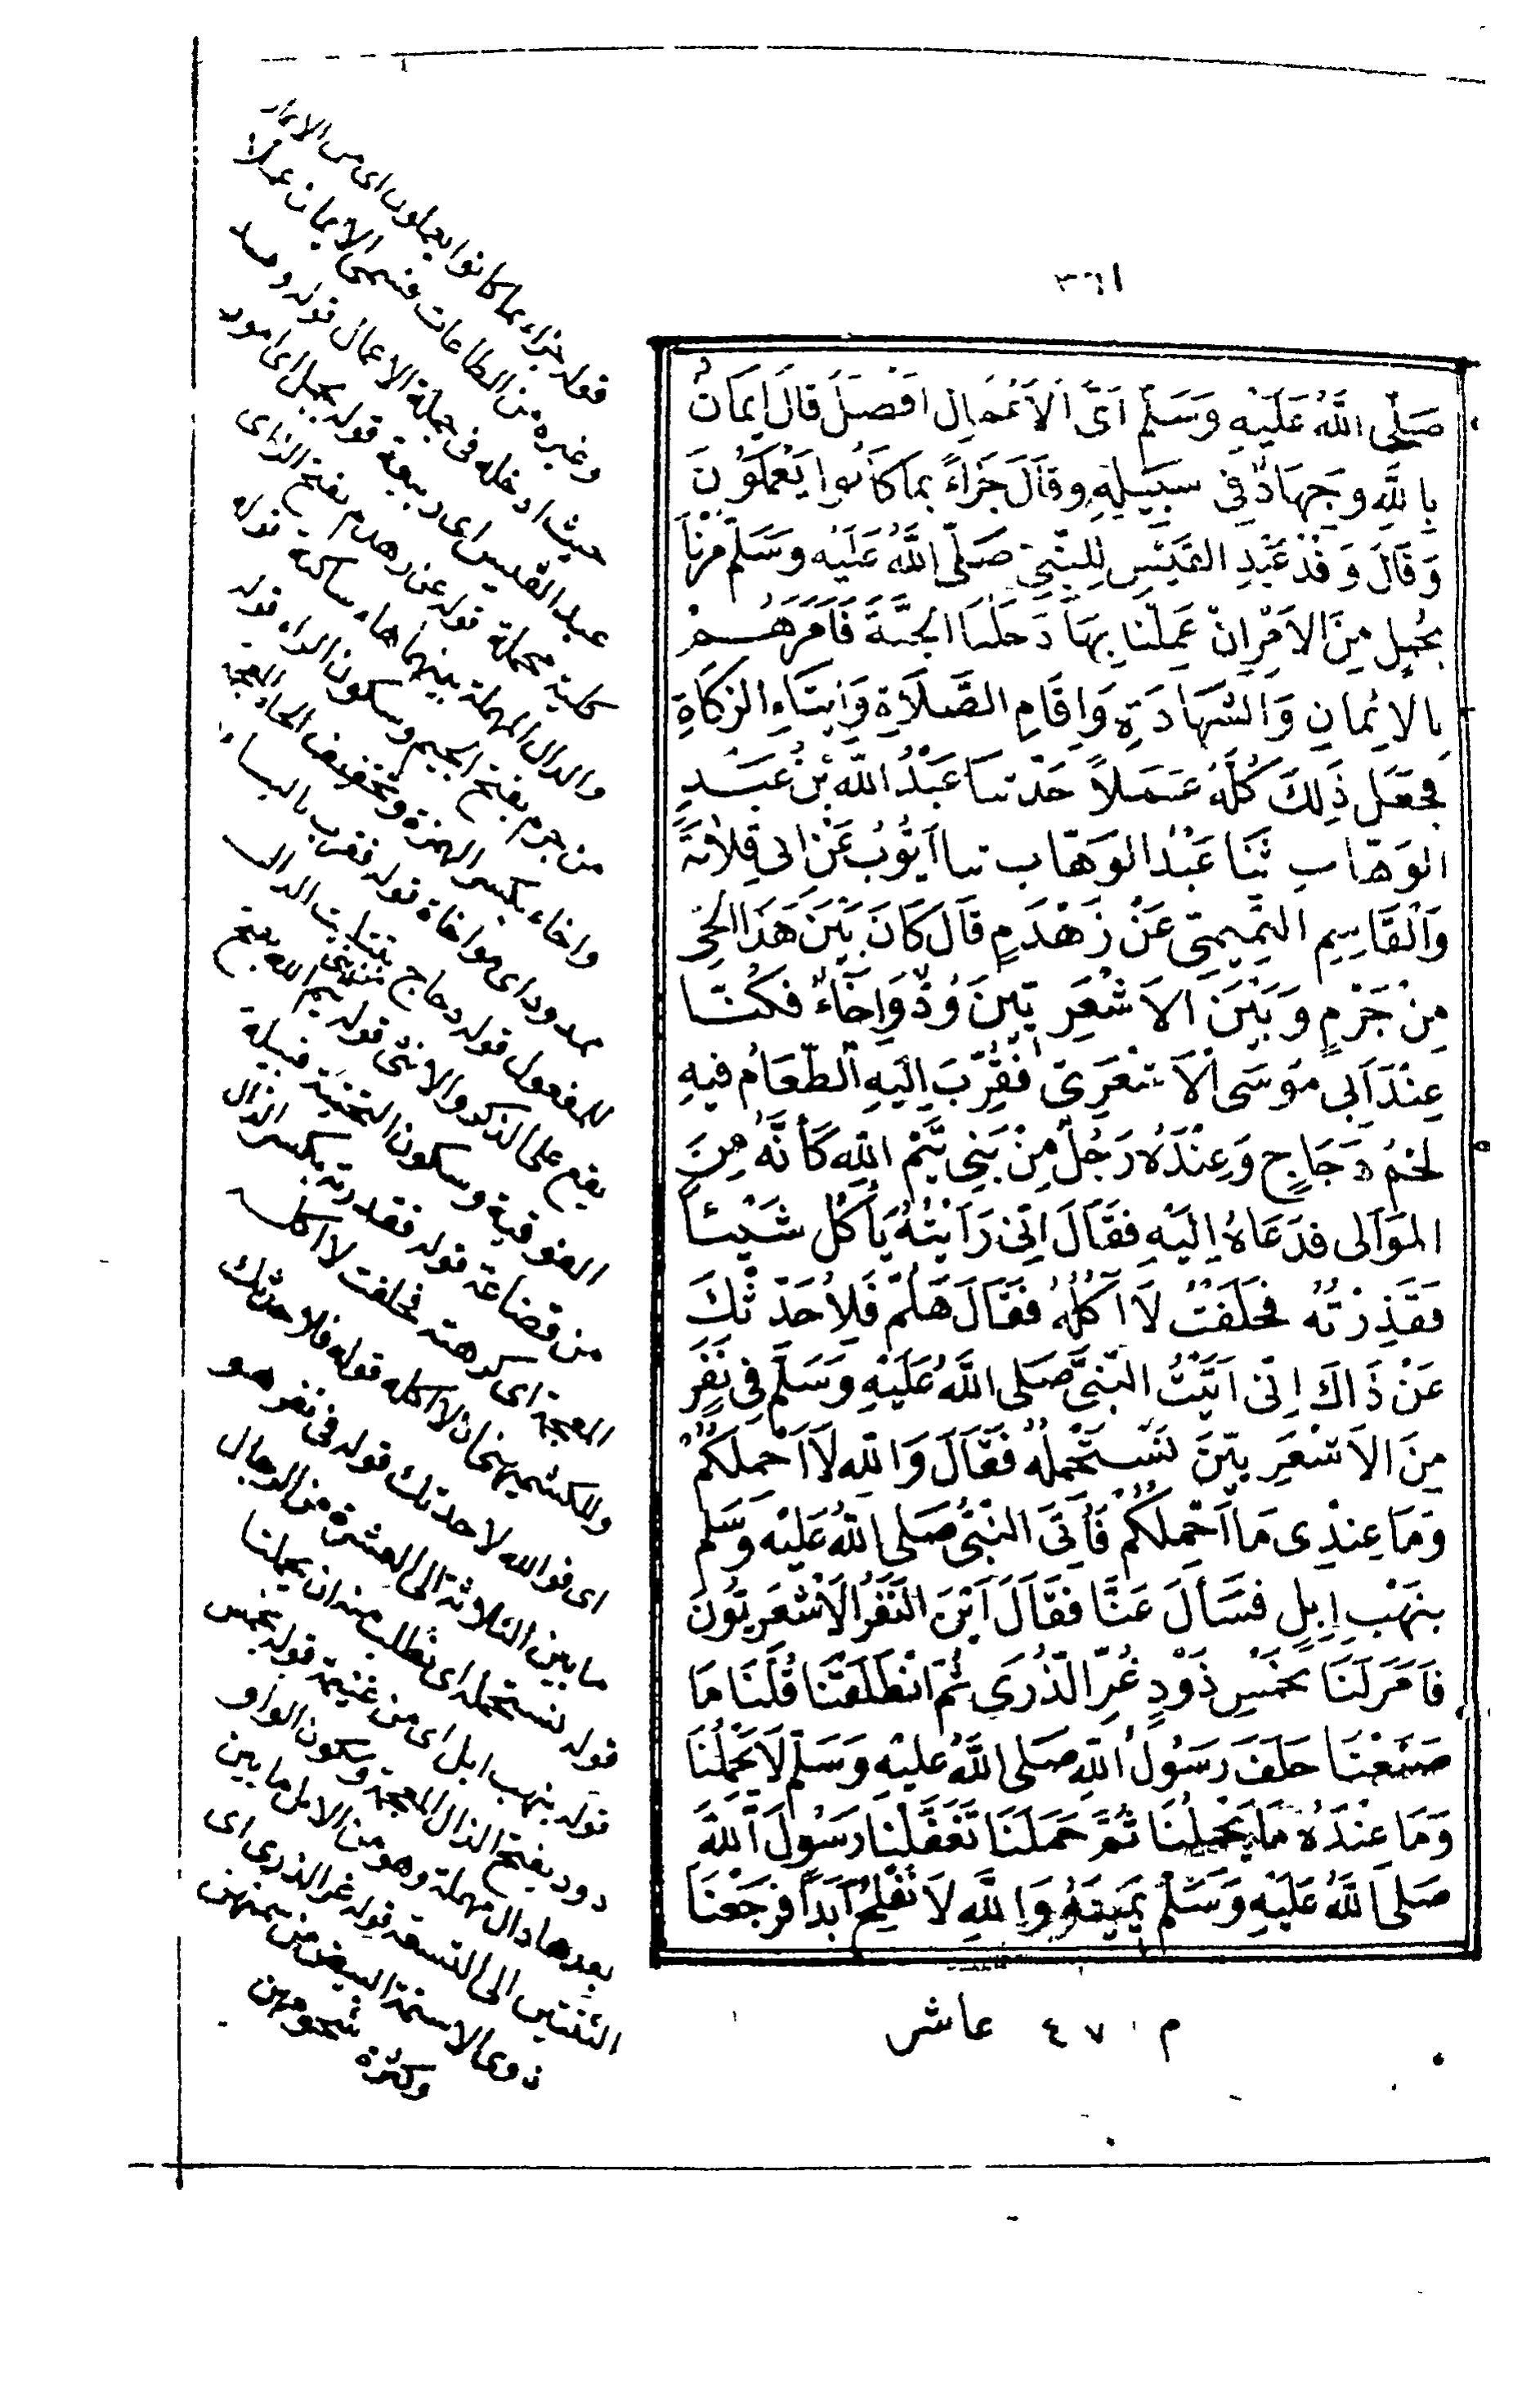 ٣٦١
صَلَّى اللَّهُ عَلَيْهِ وَسَلَّمَ أَيُّ الْأَعْمَالِ أَفْضَلُ قَالَ إِيمَانٌ
بِاللَّهِ وَجِهَادٌ فِي سَبِيلِهِ وَقَالَ جَزَاءً بِمَا كَانُوا يَعْمَلُونَ
وَقَالَ وَفْدُ عَبْدِ الْقَيْسِ لِلنَّبِيِّ صَلَّى اللَّهُ عَلَيْهِ وَسَلَّمَ مُرْنَا
بِجُمَلٍ مِنَ الْأَمْرِ إِنْ عَمِلْنَا بِهَا دَخَلْنَا الْجَنَّةَ فَأَمَرَهُمْ
بِالْإِيمَانِ وَالشَّهَادَةِ وَإِقَامِ الصَّلَاةِ وَإِيتَاءِ الزَّكَاةِ
فَجَعَلَ ذَلِكَ كُلَّهُ عَمَلًا حَدَّثَنَا عَبْدُ اللَّهِ بْنُ عَبْدِ
الْوَهَّابِ ثَنَا عَبْدُ الْوَهَّابِ ثَنَا أَيُّوبُ عَنْ أَبِي قِلَابَةَ
وَالْقَاسِمِ التَّمِيمِيِّ عَنْ زَهْدَمٍ قَالَ كَانَ بَيْنَ هَذَا الْحَيِّ
مِنْ جَرْمٍ وَبَيْنَ الْأَشْعَرِيِّينَ وُدٌّ وَإِخَاءٌ فَكُنَّا
عِنْدَ أَبِي مُوسَى الْأَشْعَرِيِّ فَقُرِّبَ إِلَيْهِ الطَّعَامُ فِيهِ
لَحْمُ دَجَاجٍ وَعِنْدَهُ رَجُلٌ مِنْ بَنِي تَيْمِ اللَّهِ كَأَنَّهُ مِنَ
الْمَوَالِي فَدَعَاهُ إِلَيْهِ فَقَالَ إِنِّي رَأَيْتُهُ يَأْكُلُ شَيْئًا
فَقَذِرْتُهُ فَحَلَفْتُ لَا آكُلُهُ فَقَالَ هَلُمَّ فَلِأُحَدِّثْكَ
عَنْ ذَاكَ إِنِّي أَتَيْتُ النَّبِيَّ صَلَّى اللَّهُ عَلَيْهِ وَسَلَّمَ فِي نَفَرٍ
مِنَ الْأَشْعَرِيِّينَ نَسْتَحْمِلُهُ فَقَالَ وَاللَّهِ لَا أَحْمِلُكُمْ
وَمَا عِنْدِي مَا أَحْمِلُكُمْ فَأُتِيَ النَّبِيُّ صَلَّى اللَّهُ عَلَيْهِ وَسَلَّمَ
بِنَهْبِ إِبِلٍ فَسَأَلَ عَنَّا فَقَالَ أَيْنَ النَّفَرُ الْأَشْعَرِيُّونَ
فَأَمَرَ لَنَا بِخَمْسِ ذَوْدٍ غُرِّ الذُّرَى ثُمَّ انْطَلَقْنَا قُلْنَا مَا
صَنَعْنَا حَلَفَ رَسُولُ اللَّهِ صَلَّى اللَّهُ عَلَيْهِ وَسَلَّمَ لَا يَحْمِلُنَا
وَمَا عِنْدَهُ مَا يَحْمِلُنَا ثُمَّ حَمَلَنَا تَغَفَّلْنَا رَسُولَ اللَّهِ
صَلَّى اللَّهُ عَلَيْهِ وَسَلَّمَ يَمِينَهُ وَاللَّهِ لَا نُفْلِحُ أَبَدًا فَرَجَعْنَا
م ٤٧ عاشر
قوله جزاء بما كانوا يعملون اى من الايمان
وغيره من الطاعات فسمى الايمان عملا
حيث ادخله فى جملة الاعمال قوله وفد
عبد القيس اى ربيعة قوله بجمل اى امور
كلية مجملة قوله عن زهدم بفتح الزاى
والدال المهملة بينهما هاء ساكنة قوله
من جرم بفتح الجيم وسكون الراء قوله
واخاء بكسر الهمزة وتخفيف الخاء المعجمة
ممدودا اى مواخاة قوله فقرب بالبناء
للمفعول قوله دجاج بتثليث الدال
يقع على الذكر والانثى قوله تيم الله بفتح
الفوقية وسكون التحتية قبيلة
من قضاعة قوله فقذرته بكسر الذال
المعجمة اى كرهته فحلفت لا آكله
وللكشميهنى ان لا آكله قوله فلاحدثك
اى فوالله لاحدثك قوله فى نفر هو
ما بين الثلاثة الى العشرة من الرجال
قوله نستحمله اى نطلب منه ان يحملنا
قوله بنهب ابل اى من غنيمة قوله بخمس
ذود بفتح الذال المعجمة وسكون الواو
بعدها دال مهملة وهو من الابل ما بين
الثنتين الى التسعة قوله غر الذرى اى
ذوى الاسنمة البيض من سمنهن
وكثرة شحومهن